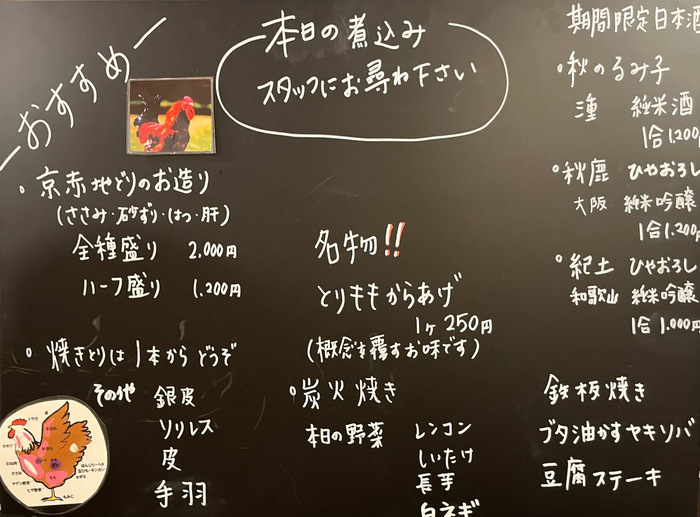 おすすめ
本日の煮込み
スタッフにお尋ね下さい
・京赤地どりのお造り
(ささみ・砂ずり・はつ・肝)
全種盛り 2,000円
ハーフ盛り 1,200円
・焼きとりは1本からどうぞ
その他 銀皮
ソリレス
皮
手羽
名物!!
とりももからあげ
1ヶ 250円
(概念を覆すお味です)
・炭火焼き
本日の野菜 レンコン
しいたけ
長芋
白ネギ
期間限定日本酒
・秋のるみ子
純米酒
1合1,200
・秋鹿 ひやおろし
大阪 純米吟醸
1合1,200
・紀土 ひやおろし
和歌山 純米吟醸
1合 1,000円
鉄板焼き
ブタ油かすヤキソバ
豆腐ステーキ